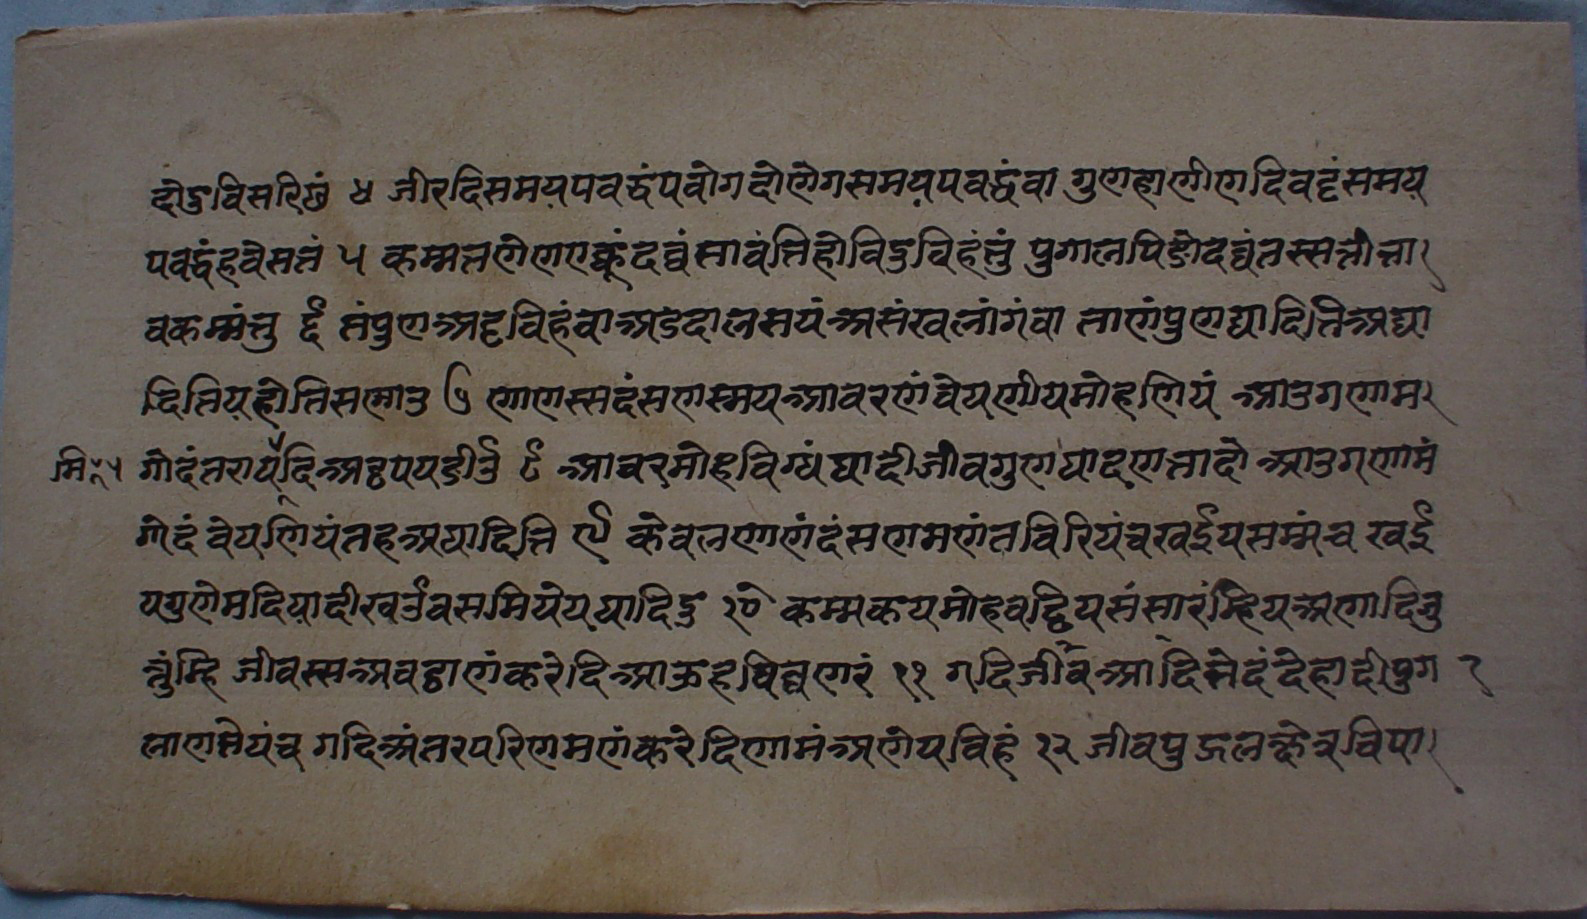 दोडु विसरिछं ४ जीरदिसमयपवद्धंपवोगदोणेगसमयपवद्धंवा गुणहाणीणदिवट्टंसमय
पवद्धंहवेसत्तं ५ कम्मत्तणेणएक्कंदव्वंभावंत्तिहोविडुविहंत्तुं पुग्गलपिंडोदव्वंतस्सत्तीभा
वकम्मंत्तु ६ तंपुणअट्टविहंवाअडदालसयंअसंखलोगंवा ताणंपुणघादित्तिअघा
दित्तियहोंत्तिसणाउ ७ णाणस्सदंसणस्सयआवरणंवेयणीयमोहणियं आउगणाम
मि गोदंतरायंदिअठ्ठपयडीउं ८ आवरमोहविग्घंघादीजीवगुणघादणत्तादो आउगणामं
गोदं वेयणियंतहअघादित्ति ९ केवलणाणंदंसणमणंतविरियंचखईयसम्मंच खई
यगुणेमदियादीखउंवसमियेयघादिडु १० कम्मकयमोहवढ्ढियसंसारंम्हियअणादिजु
त्तुंम्हि जीवस्सअवठ्ठाणंकरेदिआऊहलिव्वणरं ११ गदिजीवआदिभेदंदेहादीपुग्ग
लाणभेयंच गदिअंतरपरिणमणंकरेदिणामंअणेयविहं १२ जीवपुज्जलक्षेत्रविपा